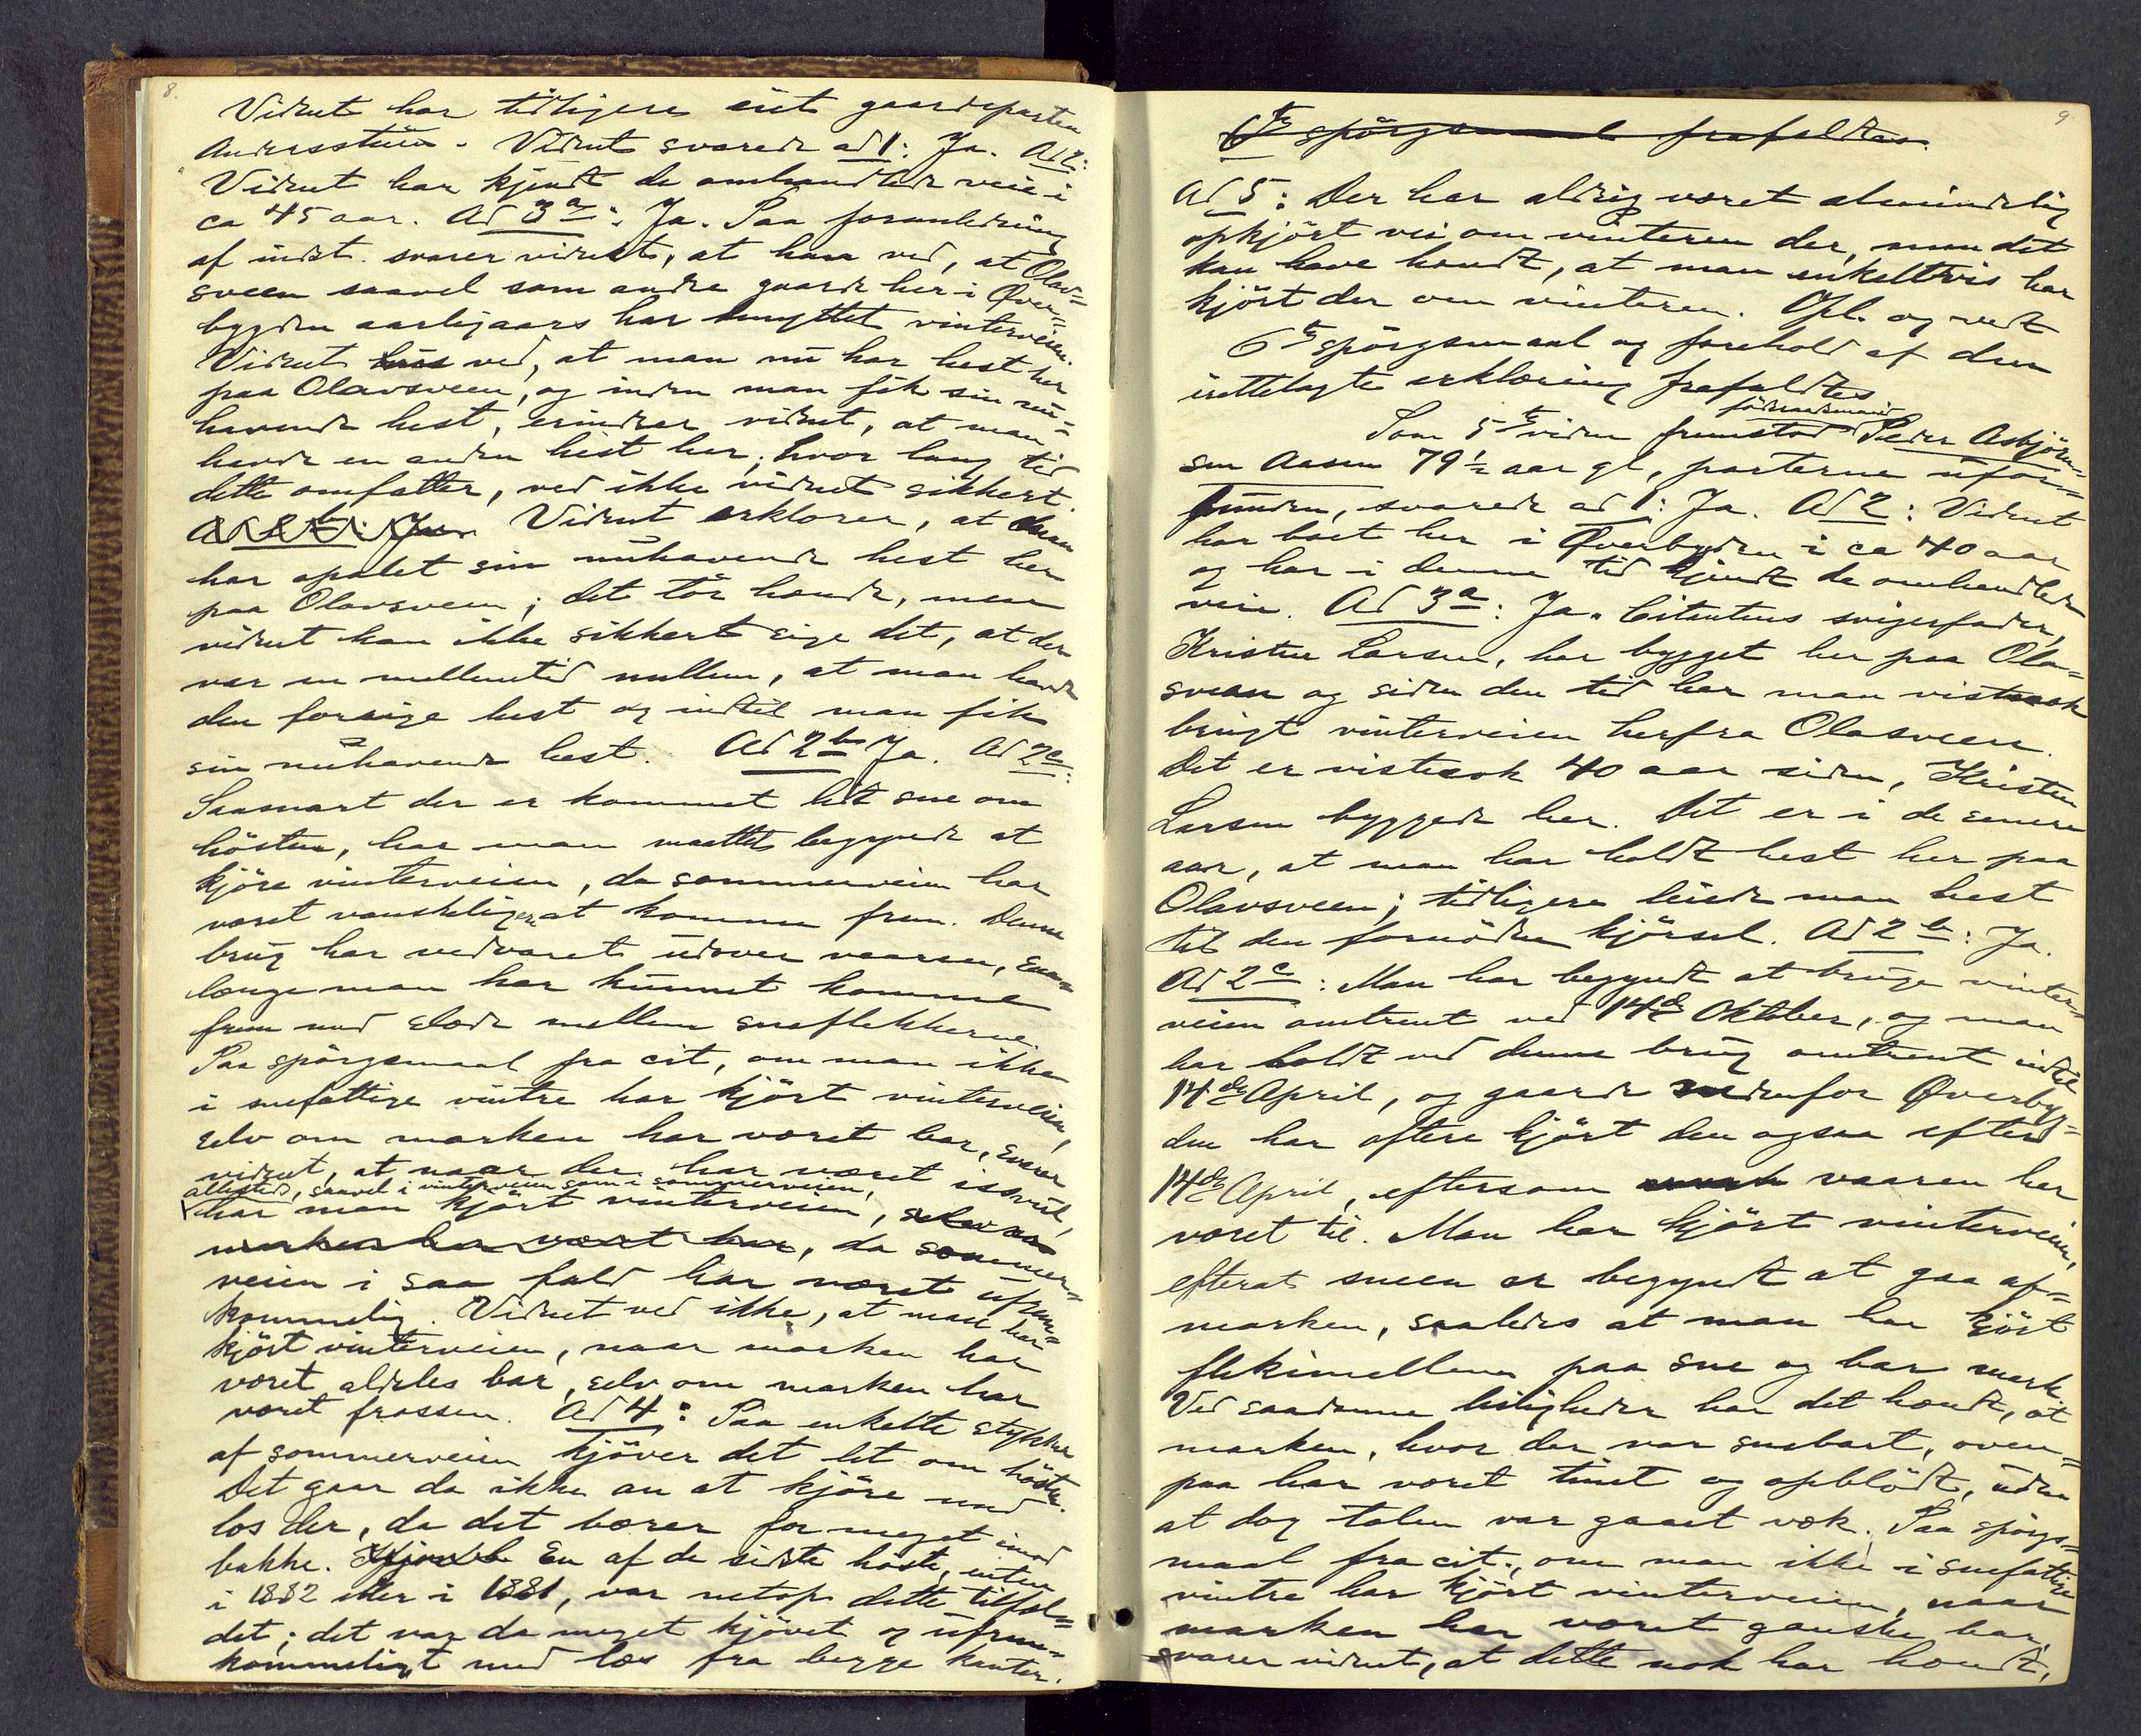 8.
Vidnet har tidligere eiet gaardsparten
Andersstuen. Vidnet svarede ad 1: Ja. Ad 2:
Vidnet har kjendt de omhandlede veie i
ca 45 aar. Ad 3a: Ja. Paa foranledning
af indst. svarer vidnet, at han ved, at Olav-
sveen saavel som andre gaarde her i Øver-
bygden aarligaars har benyttet vinterveien.
Vidnet ved, at man nu har hest her
paa Olavsveen, og inden man fik sin nu-
havende hest, erindrer vidnet, at man
havde en anden hest her; hvor lang tid
dette omfatter, ved ikke vidnet sikkert.
Ad 2 b: Ja. Vidnet erklærer, at man
har opalet sin nuhavende hest her
paa Olavsveen; det tör hænde, men
vidnet kan ikke sikkert sige det, at der
var en mellemtid mellem, at man havde
den forrige hest og indtil man fik
sin nuhavende hest. Ad 2b Ja. Ad 2c:
Saasnart der er kommet lidt sne om
hösten, har man maattet begynde at
kjöre vinterveien, da sommerveien har
været vanskeligere at komme frem. Denne
brug har vedvaret udover vaaren, saa-
længe man har kunnet komme
frem med slæde mellem sneflekkerne.
Paa spörgsmaal fra cit., om man ikke
i snefattige vintre har kjört vinterveien,
selv om marken har været bar, svarer
vidnet, at naar der har været issvul,
allesteds, saavel i vinterveien som i sommerveien,
har man kjört vinterveien, selv om
marken har været bar, da sommer-
veien i saa fald har været ufrem-
kommelig. Vidnet ved ikke, at man har
kjört vinterveien, naar marken har
været aldeles bar, selv om marken har
været frossen. Ad 4: Paa enkelte stykker
af sommerveien kjöver det let om hösten.
Det gaar da ikke an at kjöre med
læs der, da det bærer for meget imod
bakke. En af de sidste höste, enten
i 1882 eller i 1881, var netop dette tilfæl-
det; det var da meget kjövet og ufrem-
kommeligt med læs fra begge kanter.
9
6te spörgsmaal frafaldtes.
Ad 5: Der har aldrig været almindelig
opkjört vei om vinteren der, men det
kan have hændt, at man enkeltvis har
kjört der om vinteren. Opl. og vedt
6te spörgsmaal og forehold af den
irettelagte erklæring frafaldtes
föderaadsmand
Som 5te vidne fremstod Peder Asbjörn-
sen Aasen 79 1/2 aar gl, parterne ufor-
bunden, svarede ad 1: Ja. Ad 2: Vidnet
har boet her i Øverbygden i ca 40 aar
og har i denne tid kjendt de omhandlede
veie. Ad 3a: Ja. Citantens svigerfader,
Kristen Larsen, har bygget her paa Ola-
sveen og siden den tid har man vistnok
brugt vinterveien herfra Olasveen.
Det er vistnok 40 aar siden, Kristen
Larsen byggede her. Det er i de senere
aar, at man har holdt hest her paa
Olavsveen; tidligere leiede man hest
til den fornödne kjörsel. Ad 2b: Ja.
Ad 2c: Man har begyndt at bruge vinter-
veien omtrent ved 14de Oktober, og man
har holdt ved denne brug omtrent indtil
14de April, og gaarde nedenfor Øverbyg-
den har oftere kjört den ogsaa efter
14de April, eftersom vaaren har
været til. Man har kjört vinterveien,
efterat sneen er begyndt at gaa af
marken, saaledes at man har kjört
flekimellem paa sne og bar mark.
Ved saadanne leiligheder har det hændt, at
marken, hvor der var snebart, oven-
paa har været tinet og opblödt, uden
at dog tælen var gaaet væk. Paa spörgs-
maal fra cit., om man ikke i snefattige
vintre har kjört vinterveien, naar
marken har været ganske bar,
svarer vidnet, at dette nok har hændt,